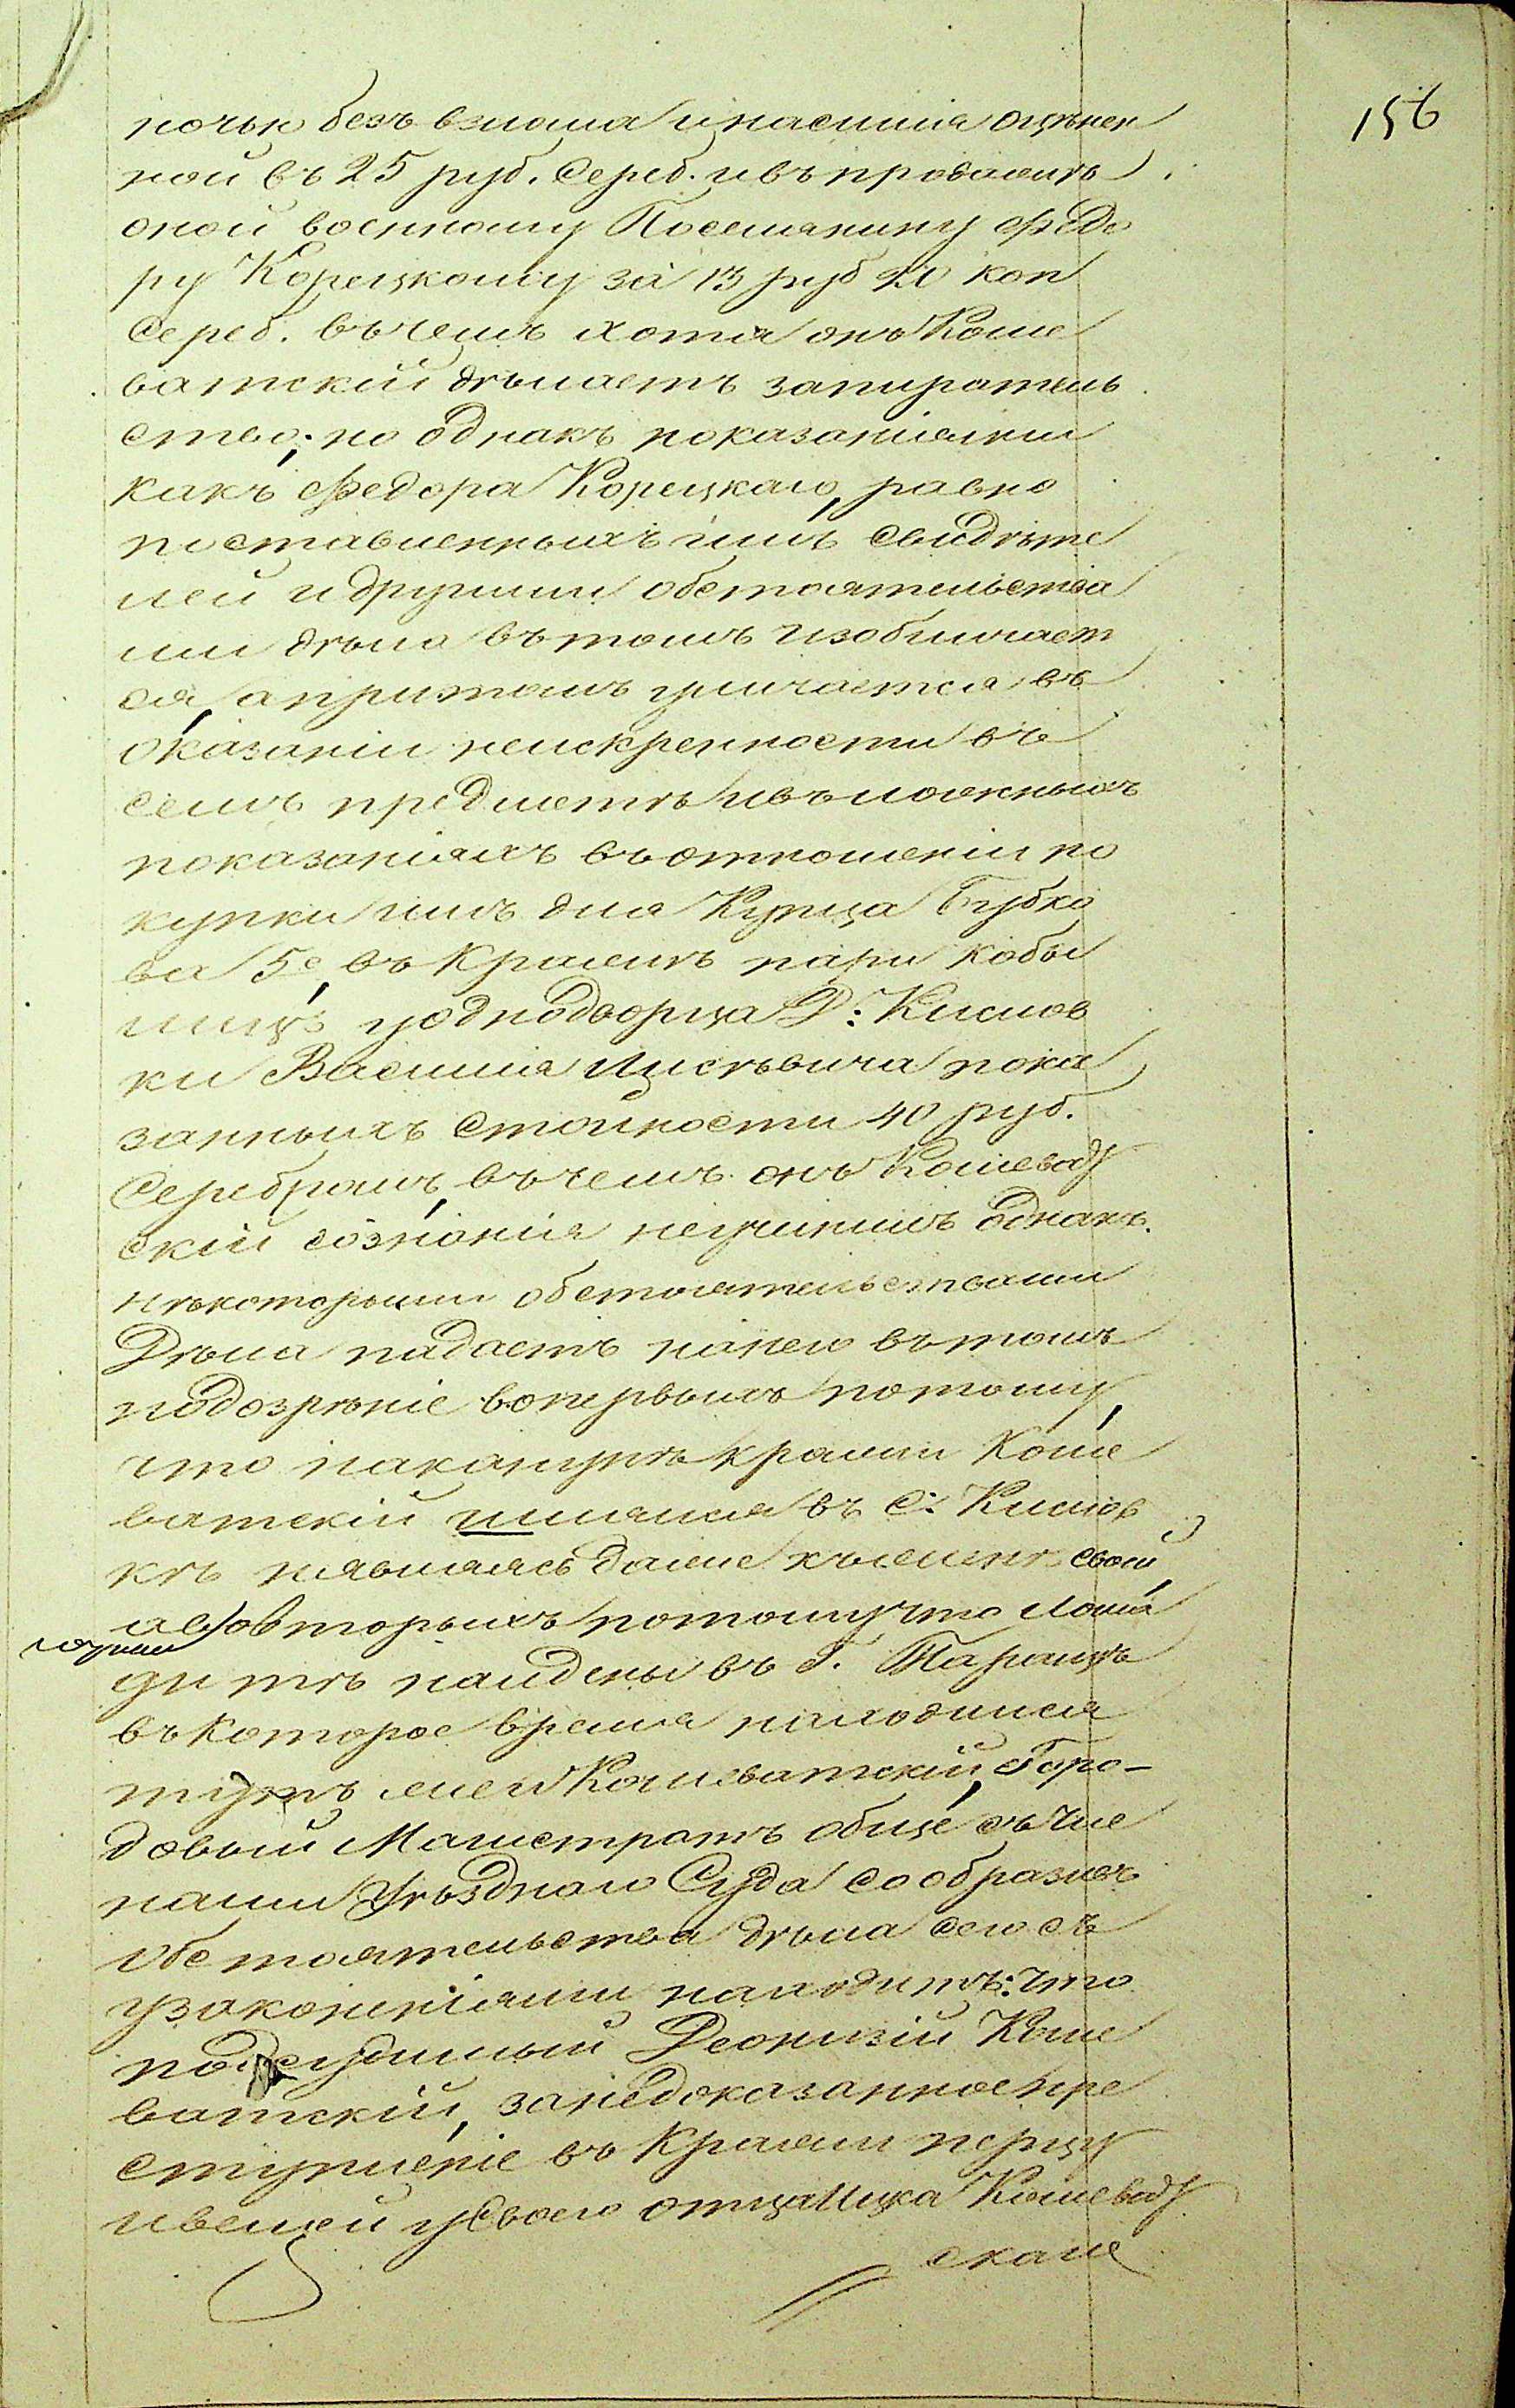 156
ночью безъ взлома и насилия оцѣнен
ной въ 25 руб. Сереб. и въ продажѣ
оной военному Поселянину Федо
ру Корецкому за 13 руб 20 коп
Сереб. въ чемъ хотя онъ Коше
ватскій дѣлаетъ запиратель
ство; но однакъ показаніями
какъ Федора Корецкаго, равно
поставленныхъ имъ свидѣте
лей и другими обстоятельства
ми дѣла въ томъ изобличает
ся, а притомъ уличается въ
оказаніи неискренности въ
семъ предметѣ и въ ложныхъ
показаніяхъ въ отношеніи по
купки имъ для Купца Губко
ва 5е, въ Кражѣ пари кобы
лицъ у однодворца Д: Кислов
ки Василия показанныхъ
занныхъ Стоимости 40 руб.
Серебромъ, въ чемъ онъ Кошеват
скій сознанія неучинилъ однакъ
нѣкоторыми обстоятельствами
Дѣла падаетъ на него въ томъ
подозрѣніе вопервыхъ потому,
что наканунѣ кражи Коше
ватскій шлялся въ С: Кислов
кѣ неявляясь даже къ женѣ своей,
а вовторыхъ потому что лоша
ди тѣ найдены въ Г. Таращѣ
въ Которое время находился
тутъ же и Кошеватскій, Горо-
довый Магистратъ обще съ Чле
нами Уѣзднаго Суда сообразивъ
Обстоятельства дѣла сего съ
узаконеніями находитъ: что
подсудимый Деонизій Коше
ватскій, за недоказанное пре
ступленіе въ Кражи перцу
и вещей у Своего отца Ицка Кошеват
скаго